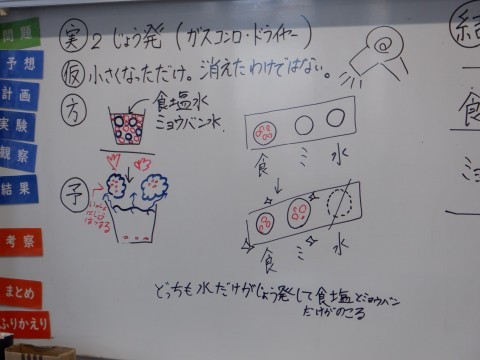 問題
予想
計画
実験
観察
結果
考察
まとめ
ふりかえり
実 2 じょう発 (ガスコンロ・ドライヤー)
仮 小さくなっただけ。消えたわけではない。
方
食塩水
ミョウバン水.
食 ミ 水
予
食 ミ 水
どっちも水だけがじょう発して食塩とミョウバン
だけがのこる
結
食
ミョ